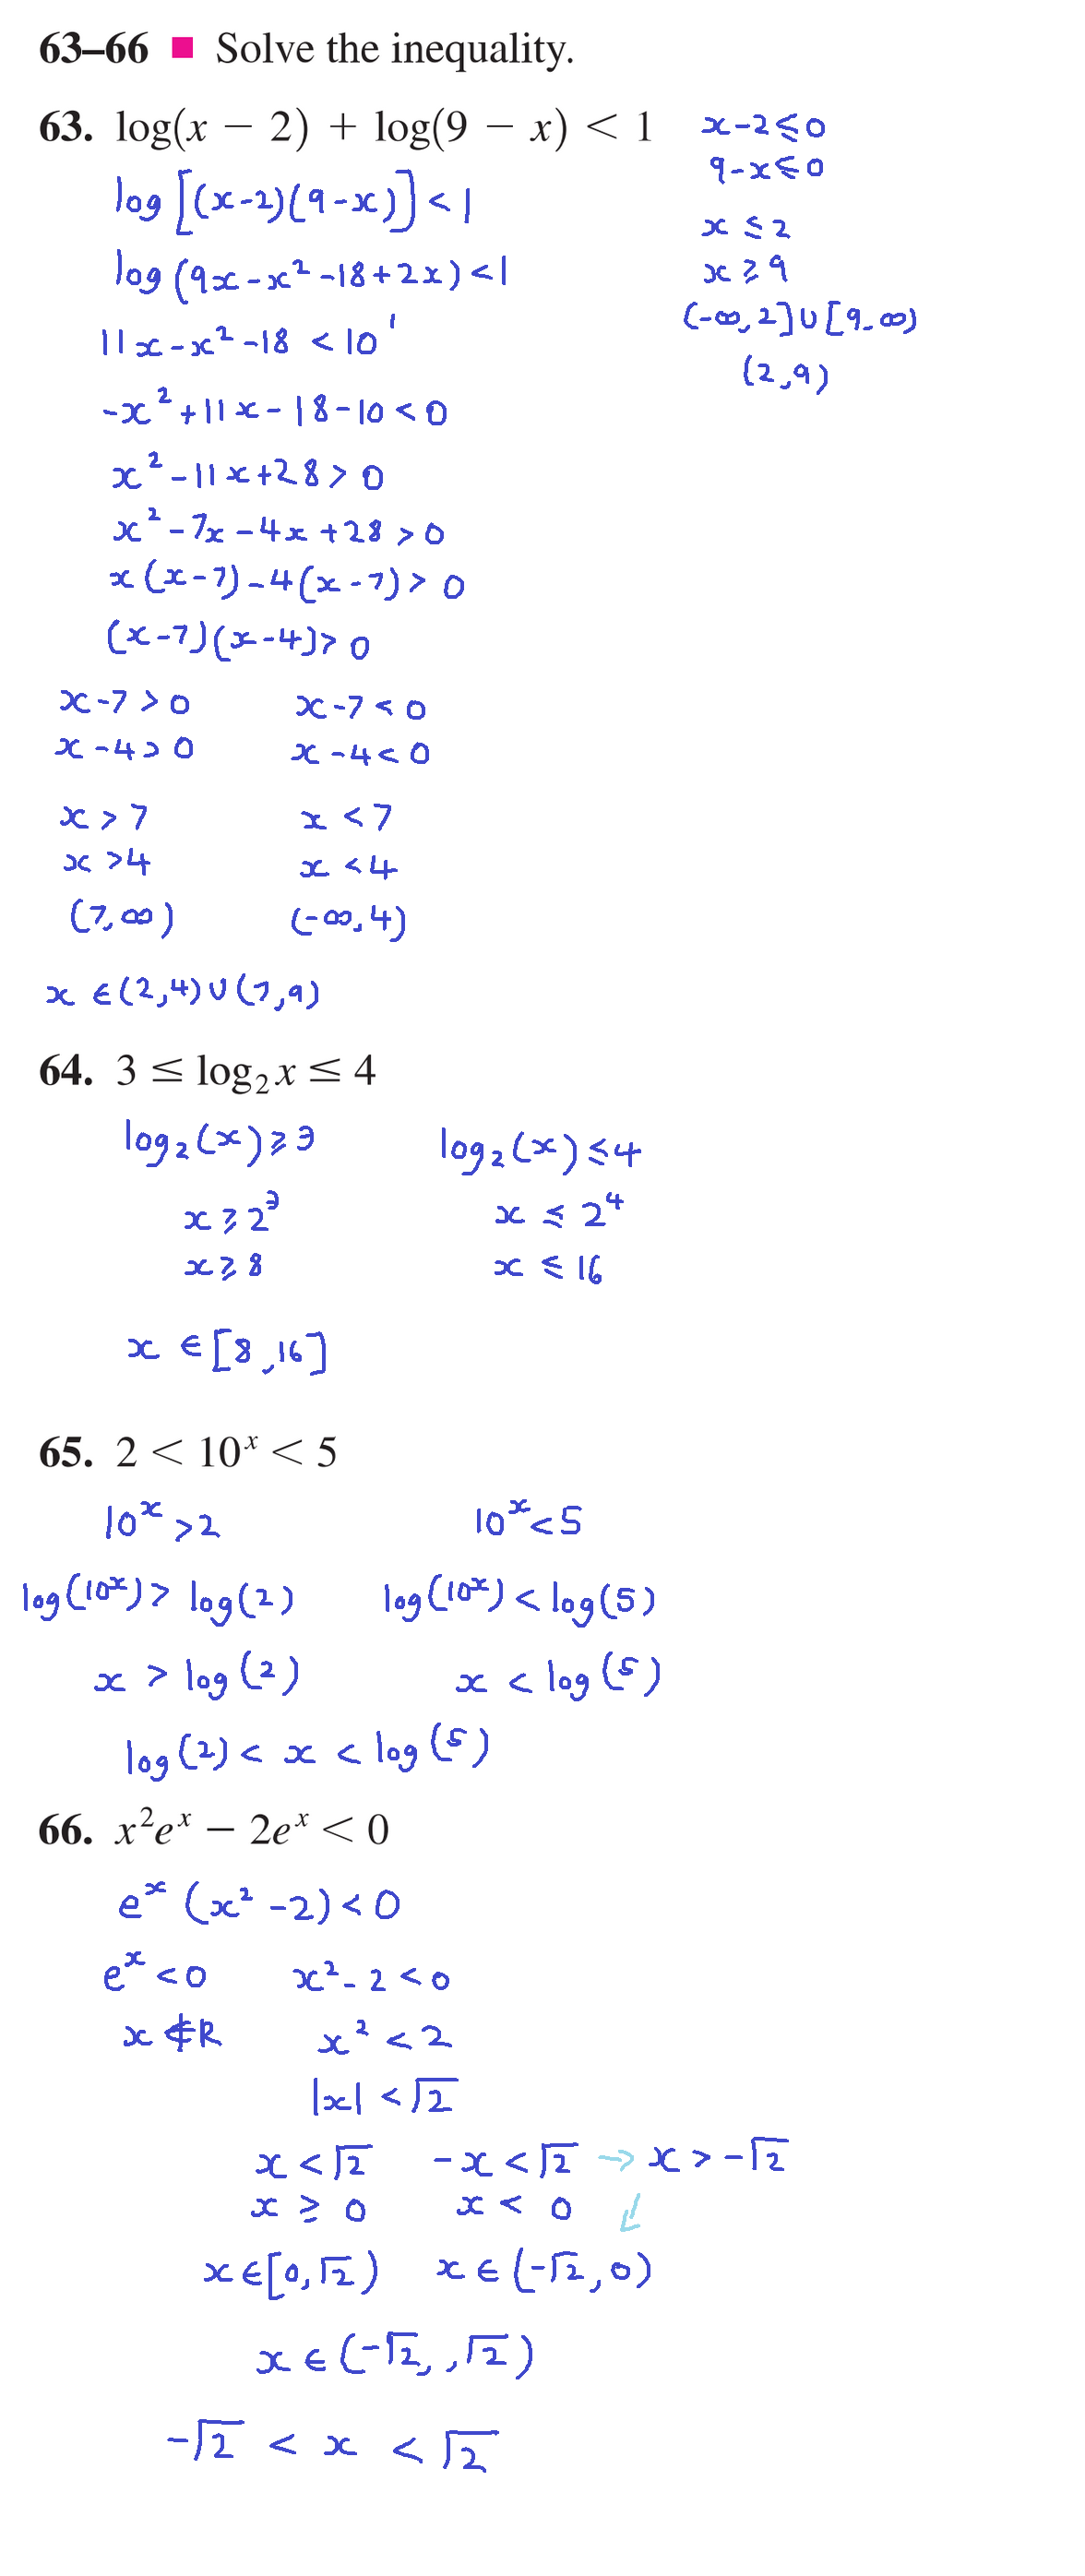 63–66 ■ Solve the inequality.
63. log(x − 2) + log(9 − x) < 1
x-2≤0
9-x≤0
log[(x-2)(9-x)]<1
x ≤ 2
log(9x-x²-18+2x)<1
x ≥ 9
11x-x²-18 < 10¹
(-∞,2]∪[9,∞)
(2,9)
-x²+11x-18-10<0
x²-11x+28>0
x²-7x-4x+28>0
x(x-7)-4(x-7)>0
(x-7)(x-4)>0
x-7>0 x-7<0
x-4>0 x-4<0
x>7 x<7
x>4 x<4
(7,∞) (-∞,4)
x ∈(2,4)∪(7,9)
64. 3 ≤ log₂ x ≤ 4
log₂(x)≥3 log₂(x)≤4
x≥2³ x ≤ 2⁴
x≥8 x ≤ 16
x ∈[8,16]
65. 2 < 10ˣ < 5
10ˣ>2 10ˣ<5
log(10ˣ)> log(2) log(10ˣ)<log(5)
x > log(2) x < log(5)
log(2)< x < log(5)
66. x²eˣ − 2eˣ < 0
eˣ(x²-2)<0
eˣ<0 x²-2<0
x∉R x²<2
|x|<√2
x<√2 -x<√2 → x>-√2
x ≥ 0 x < 0 ↙
x∈[0,√2) x∈(-√2,0)
x∈(-√2,,√2)
-√2 < x < √2